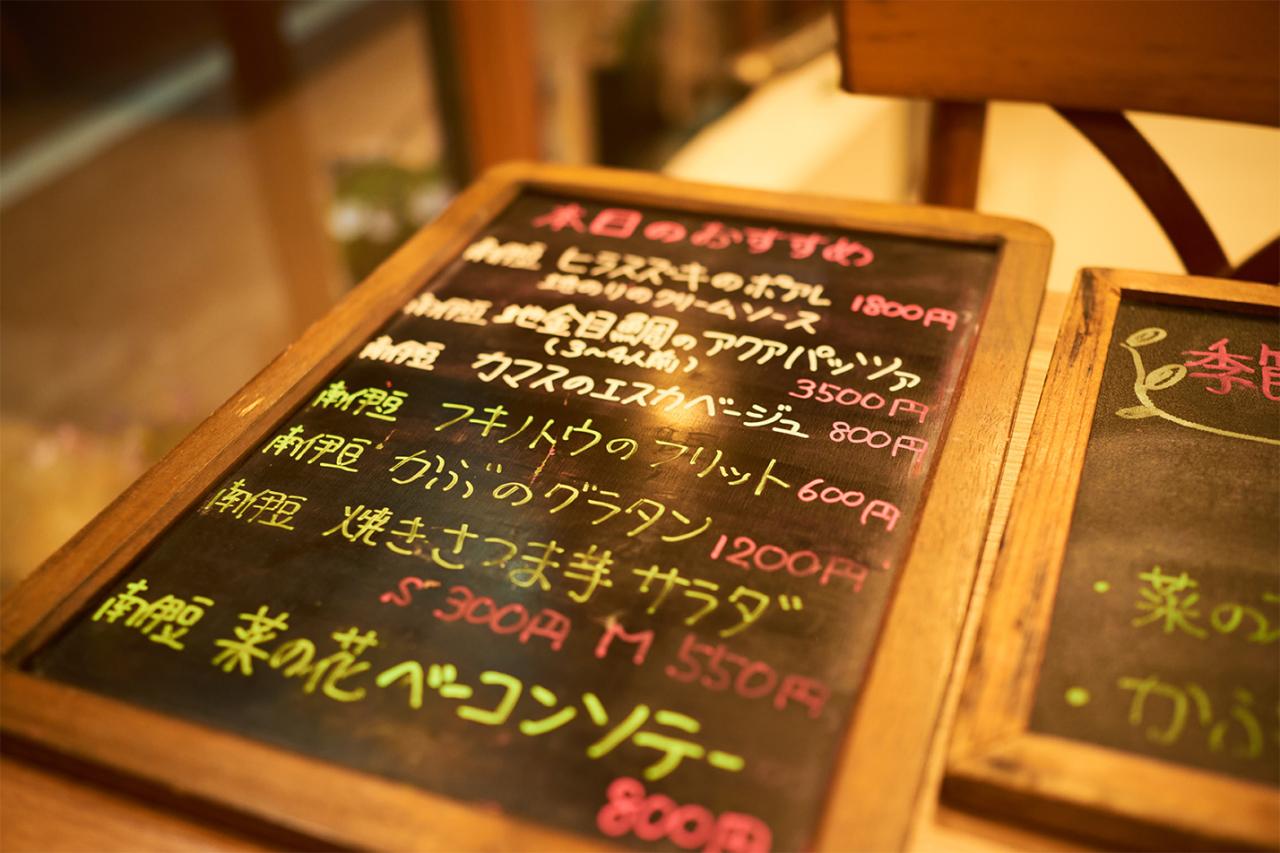 本日のおすすめ
南伊豆 ヒラスズキのポアレ 1800円
のりのクリームソース
南伊豆 地金目鯛のアクアパッツァ
(3〜4人前) 3500円
南伊豆 カマスのエスカベージュ 800円
南伊豆 フキノトウのフリット 600円
南伊豆 かぶのグラタン 1200円
南伊豆 焼きさつま芋 サラダ
S 300円 M 550円
南伊豆 菜の花ベーコンソテー
800円
季
・菜の
・かぶ